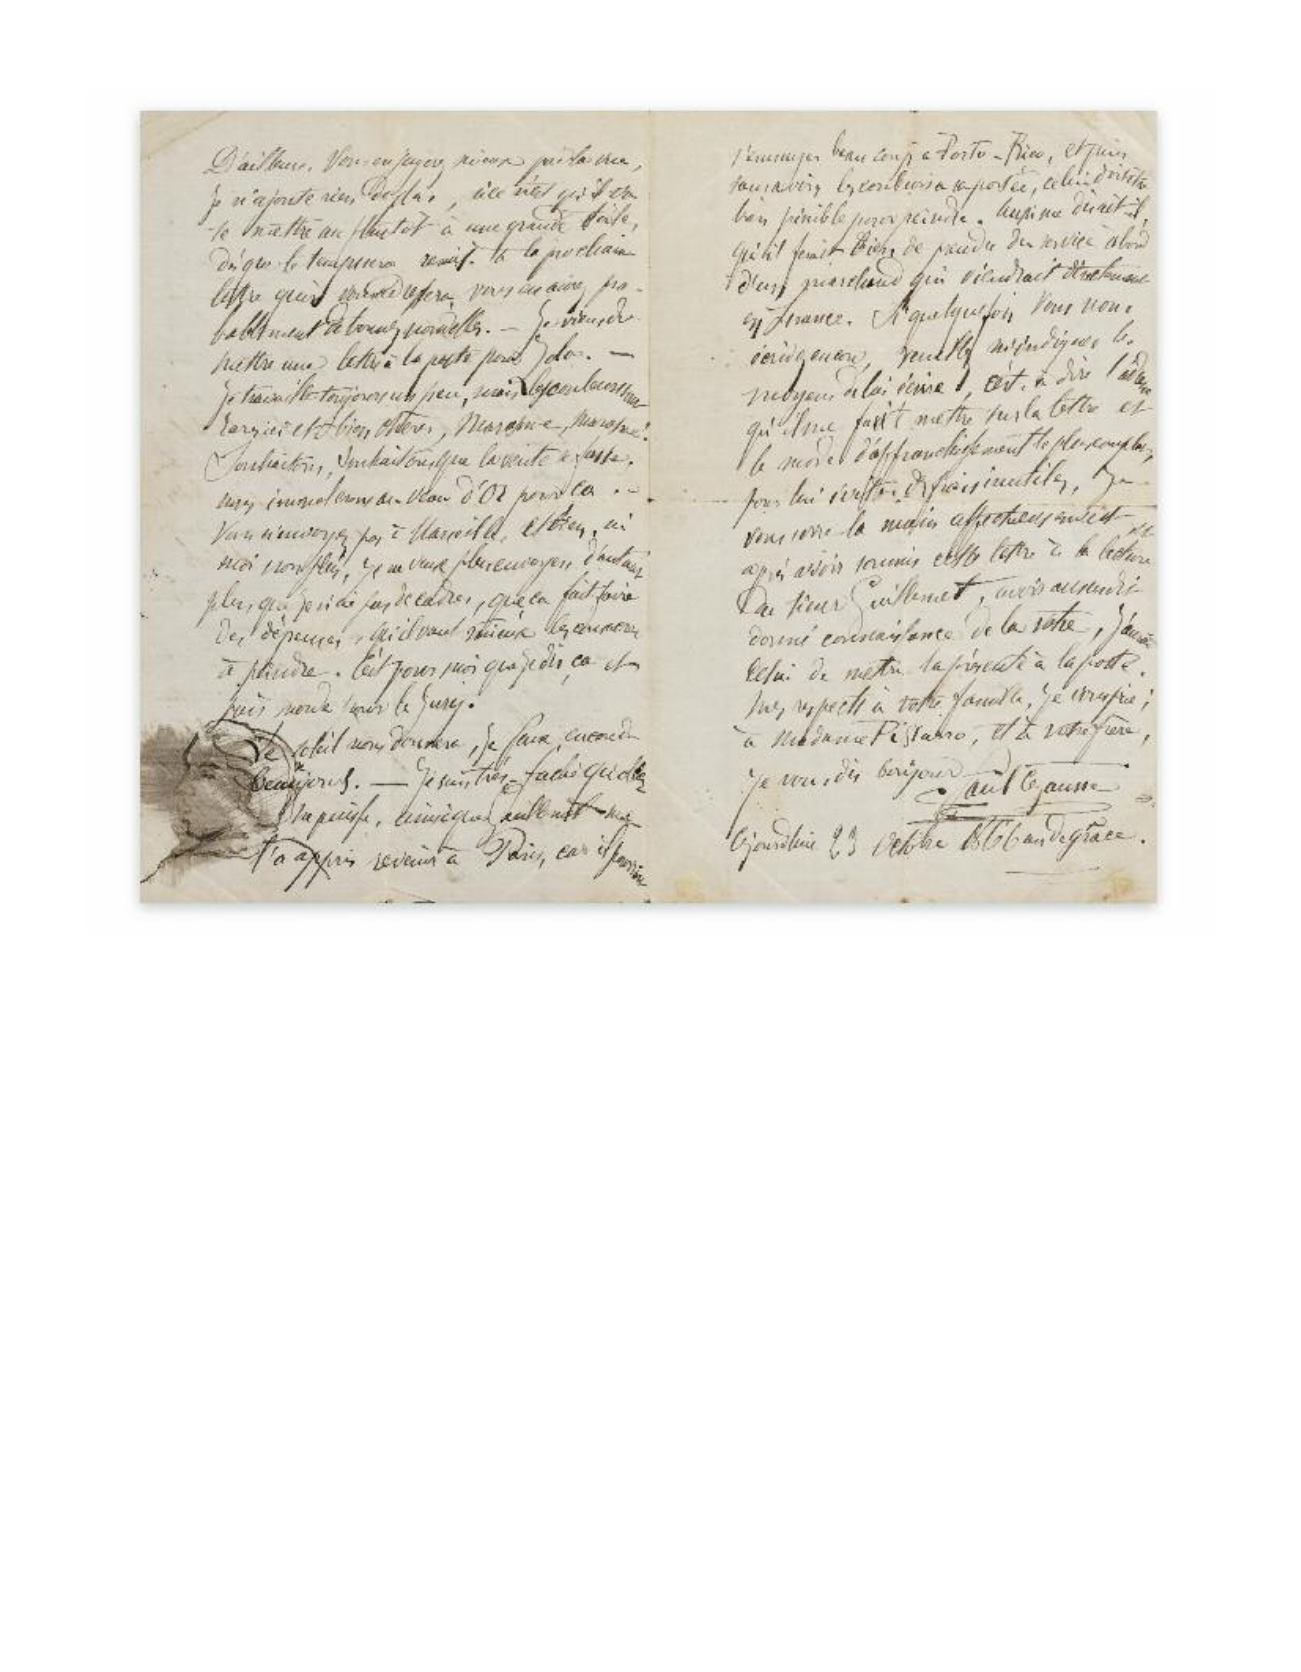 D'ailleurs. Vous en jugerez mieux par la vue,
je n'ajoute rien de plus, si ce n'est qu'il va
se mettre au plutot à une grande toile,
dès que le temps sera remis. A la prochaine
lettre qui vous sera, vous en aurez pro-
bablement de bonnes nouvelles. — Je viens de
mettre une lettre à la poste pour Zola. —
Je travaille toujours un peu, mais les couleurs sont
rares ici et bien chères, Marasme, marasme!
Souhaitons, souhaitons que la vente se fasse.
nous immolerons un veau d'Or pour ça. —
Vous n'envoyez pas à Marseille, eh bien, ni
moi non plus, je ne veux plus envoyer, d'autant
plus que je n'ai pas de cadres, que ça fait faire
des dépenses, qu'il vaut mieux les consacrer
à peindre. C'est pour moi que je dis ça et
puis merde pour le Jury.
Le soleil nous donnera, je peux, encore de
beaux jours. — Je suis très-faché qu'Oller
ne puisse, ainsi que Guillemet me
l'a appris revenir à Paris, car il pourra
s'ennuyer beaucoup à Porto-Rico, et puis
sans avoir les couleurs à sa portée, cela doit être
bien pénible pour peindre. Aussi me disait-il,
qu'il ferait bien de prendre du service à bord
d'un marchand qui viendrait directement
en France. Si quelquefois vous nous
écrivez encore, veuillez m'indiquer le
moyen de lui écrire, c'est à dire l'adresse
qu'il me faut mettre sur la lettre et
le mode d'affranchissement le plus complet,
pour lui éviter des frais inutiles. Je
vous serre la main affectueusement et
après avoir soumis cette lettre à la lecture
du sieur Guillemet, avoir aussi
donné connaissance de la votre, j'aurai
celui de mettre la présente à la poste.
Mes respects à votre famille, je vous prie;
à madame Pissarro, et à votre frère,
Je vous dis bonjour
Paul Cezanne
Ajourd'hui 23 octobre 1866 an de grâce.